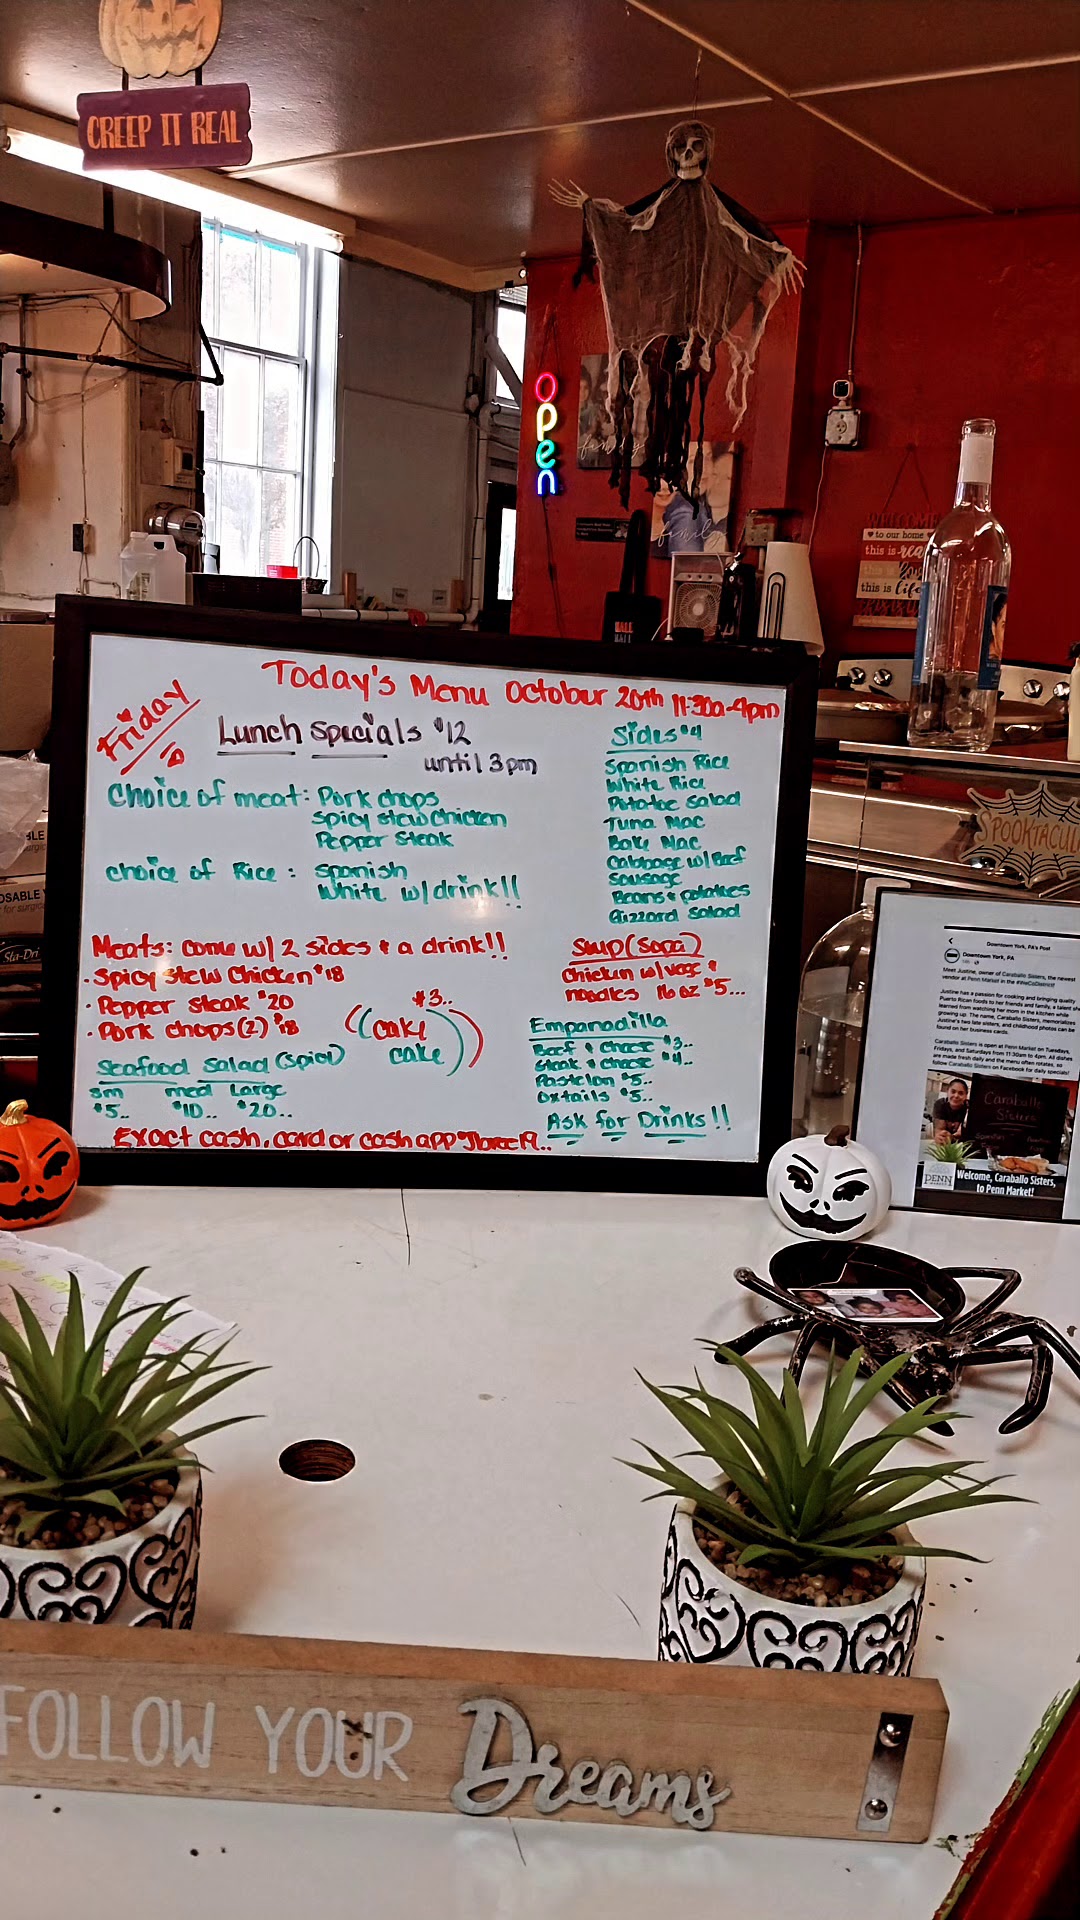 CREEP IT REAL
open
family
family
WELCOME
to our home
this is real
this is
this is life
Today's Menu October 20th 11:30a-4pm
Friday
Lunch Specials $12
until 3pm
Choice of meat: Pork chops
Spicy stew Chicken
Pepper Steak
choice of Rice: Spanish
White w/drink!!
Sides $4
Spanish Rice
White Rice
Potatoe Salad
Tuna Mac
Bake Mac
Cabbage w/Beef
Sausage
Beans & potatoes
Gizzard Salad
Meats: come w/ 2 sides & a drink!!
• Spicy stew Chicken $18
• Pepper steak $20
• Pork chops (2) $18
$3..
((cake
cake))
Seafood Salad (Spicy)
sm med Large
$5.. $10.. $20..
Soup (Sopa)
Chicken w/vegg &
noodles 16oz $5...
Empanadilla
Beef & Cheese $3..
Steak & Cheese $4..
Pastelon $5..
Oxtails $5..
Ask for Drinks!!
Exact cash, card or cash app
SPOOKTACUL
Sta-Dri
Downtown York, PA's Post
Downtown York, PA
Meet Justine, owner of Caraballo Sisters, the newest
vendor at Penn Market in the #YroCoDistrict!
Justine has a passion for cooking and bringing quality
Puerto Rican foods to her friends and family, a talent sh
learned from watching her mom in the kitchen while
growing up. The name, Caraballo Sisters, memorializes
Justine's two late sisters, and childhood photos can be
found on her business cards.
Caraballo Sisters is open at Penn Market on Tuesdays,
Fridays, and Saturdays from 11:30am to 4pm. All dishes
are made fresh daily and the menu often rotates, so
follow Caraballo Sisters on Facebook for daily specials!
Caraballo
Sisters
PENN
Welcome, Caraballo Sisters,
to Penn Market!
FOLLOW YOUR Dreams